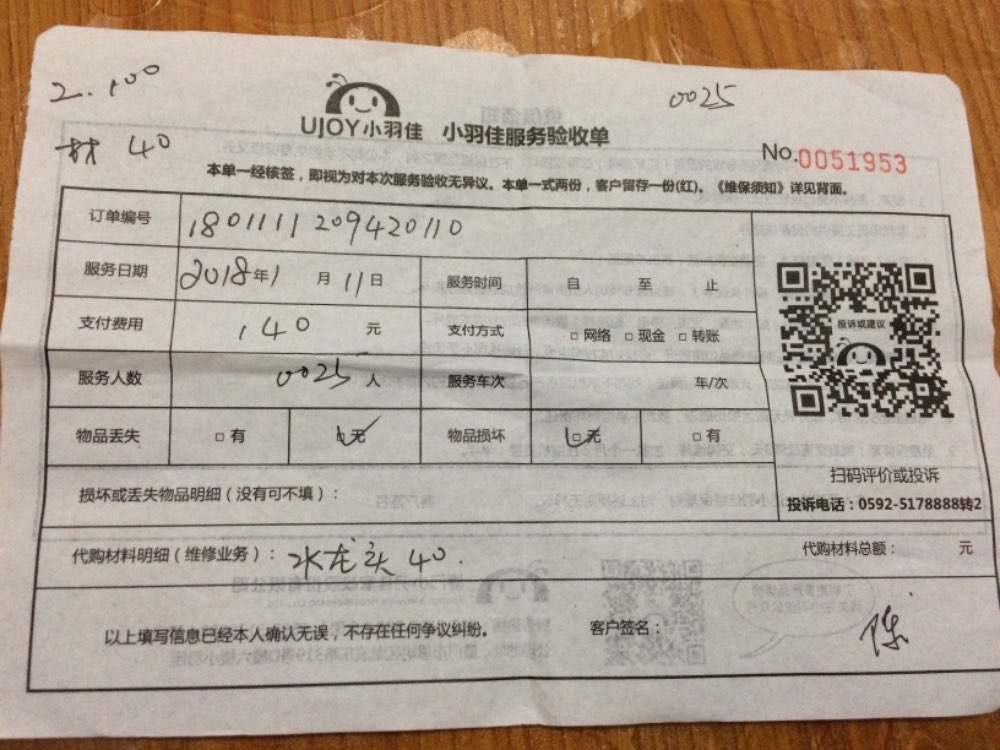 2.100
0025
UJOY小羽佳 小羽佳服务验收单
材 40
No.0051953
本单一经核签，即视为对本次服务验收无异议。本单一式两份，客户留存一份(红)。《维保须知》详见背面。
订单编号 1801111209420110
服务日期 2018年1月11日 服务时间 自 至 止
支付费用 140元 支付方式 □网络 □现金 □转账
投诉或建议
服务人数 0025人 服务车次 车/次
物品丢失 □有 □无 物品损坏 □无 □有
扫码评价或投诉
损坏或丢失物品明细（没有可不填）：
投诉电话：0592-5178888转2
代购材料明细（维修业务）： 水龙头 40 代购材料总额： 元
以上填写信息已经本人确认无误，不存在任何争议纠纷。 客户签名： 陈